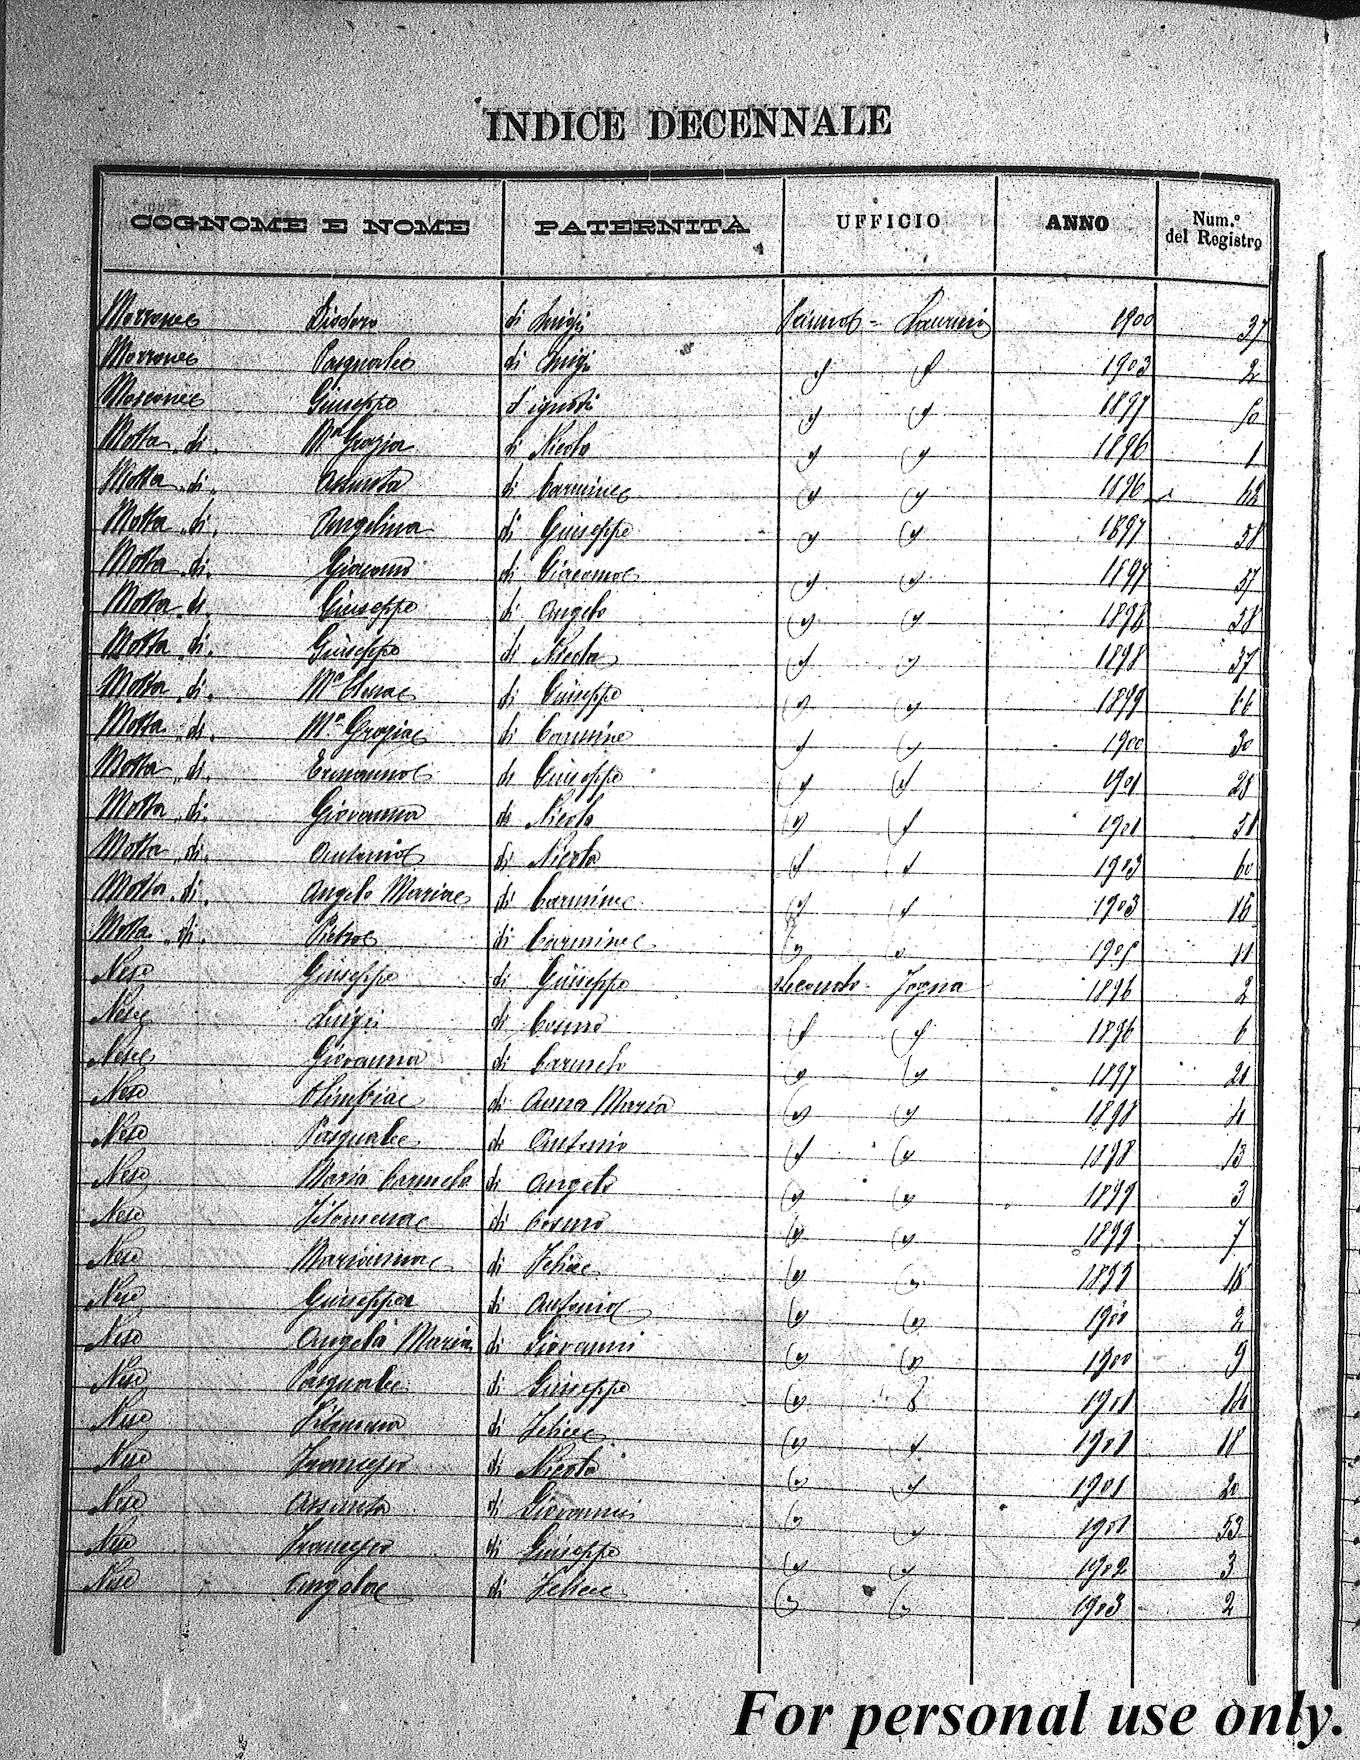 INDICE DECENNALE
COGNOME E NOME PATERNITÀ UFFICIO ANNO Num.º del Registro
Morrone Diodoro di Luigi Laurino 1900 37
Morrone Pasquale di Luigi " " 1903 2
Giuseppe d'ignoti " " 1897
Motta di Mª Grazia di Nicola " " 1896 1
Motta di Assunta di Carmine " " 1896
Motta di Angelina di Giuseppe " " 1897 58
Motta di Giacomo di Giacomo " " 1897 57
Motta di Giuseppe di Angelo " " 1898 58
Motta di Giuseppe di Nicola " " 1898 37
Motta di Mª Elena di Giuseppe " " 1899 66
Motta di Mª Grazia di Carmine " " 1900 30
Motta di Ermanno di Giuseppe " " 1901 28
Motta di Giovanna di Nicola " " 1901 58
Motta di Antonio di Nicola " " 1903 60
Motta di Angelo Maria di Carmine " " 1903 16
Motta di Pietro di Carmine " " 1905 11
Nese Giuseppe di Giuseppe 1896 2
Nese Luigi di Cosmo " " 1896 6
Nese Giovanna di Carmelo " " 1897 21
Nese Olimpia di Anna Maria " " 1898
Nese Pasquale di Antonio " " 1898 13
Nese Maria Carmela di Angelo " " 1899 3
Nese Filomena di Cosmo " " 1899 7
Nese Marianna di Felice " " 1899 18
Nese Giuseppa di Antonio " " 1900 2
Nese Angela Maria di Giovanni " " 1900 9
Nese Pasquale di Giuseppe " " 1901
Nese Filomena di Felice " " 1901 18
Nese Francesco di Nicola " " 1901 20
Nese Assunta di Giovanni " " 1901 53
Nese Francesco di Giuseppe " " 1902 3
Nese Angela di Felice " " 1903 2
For personal use only.